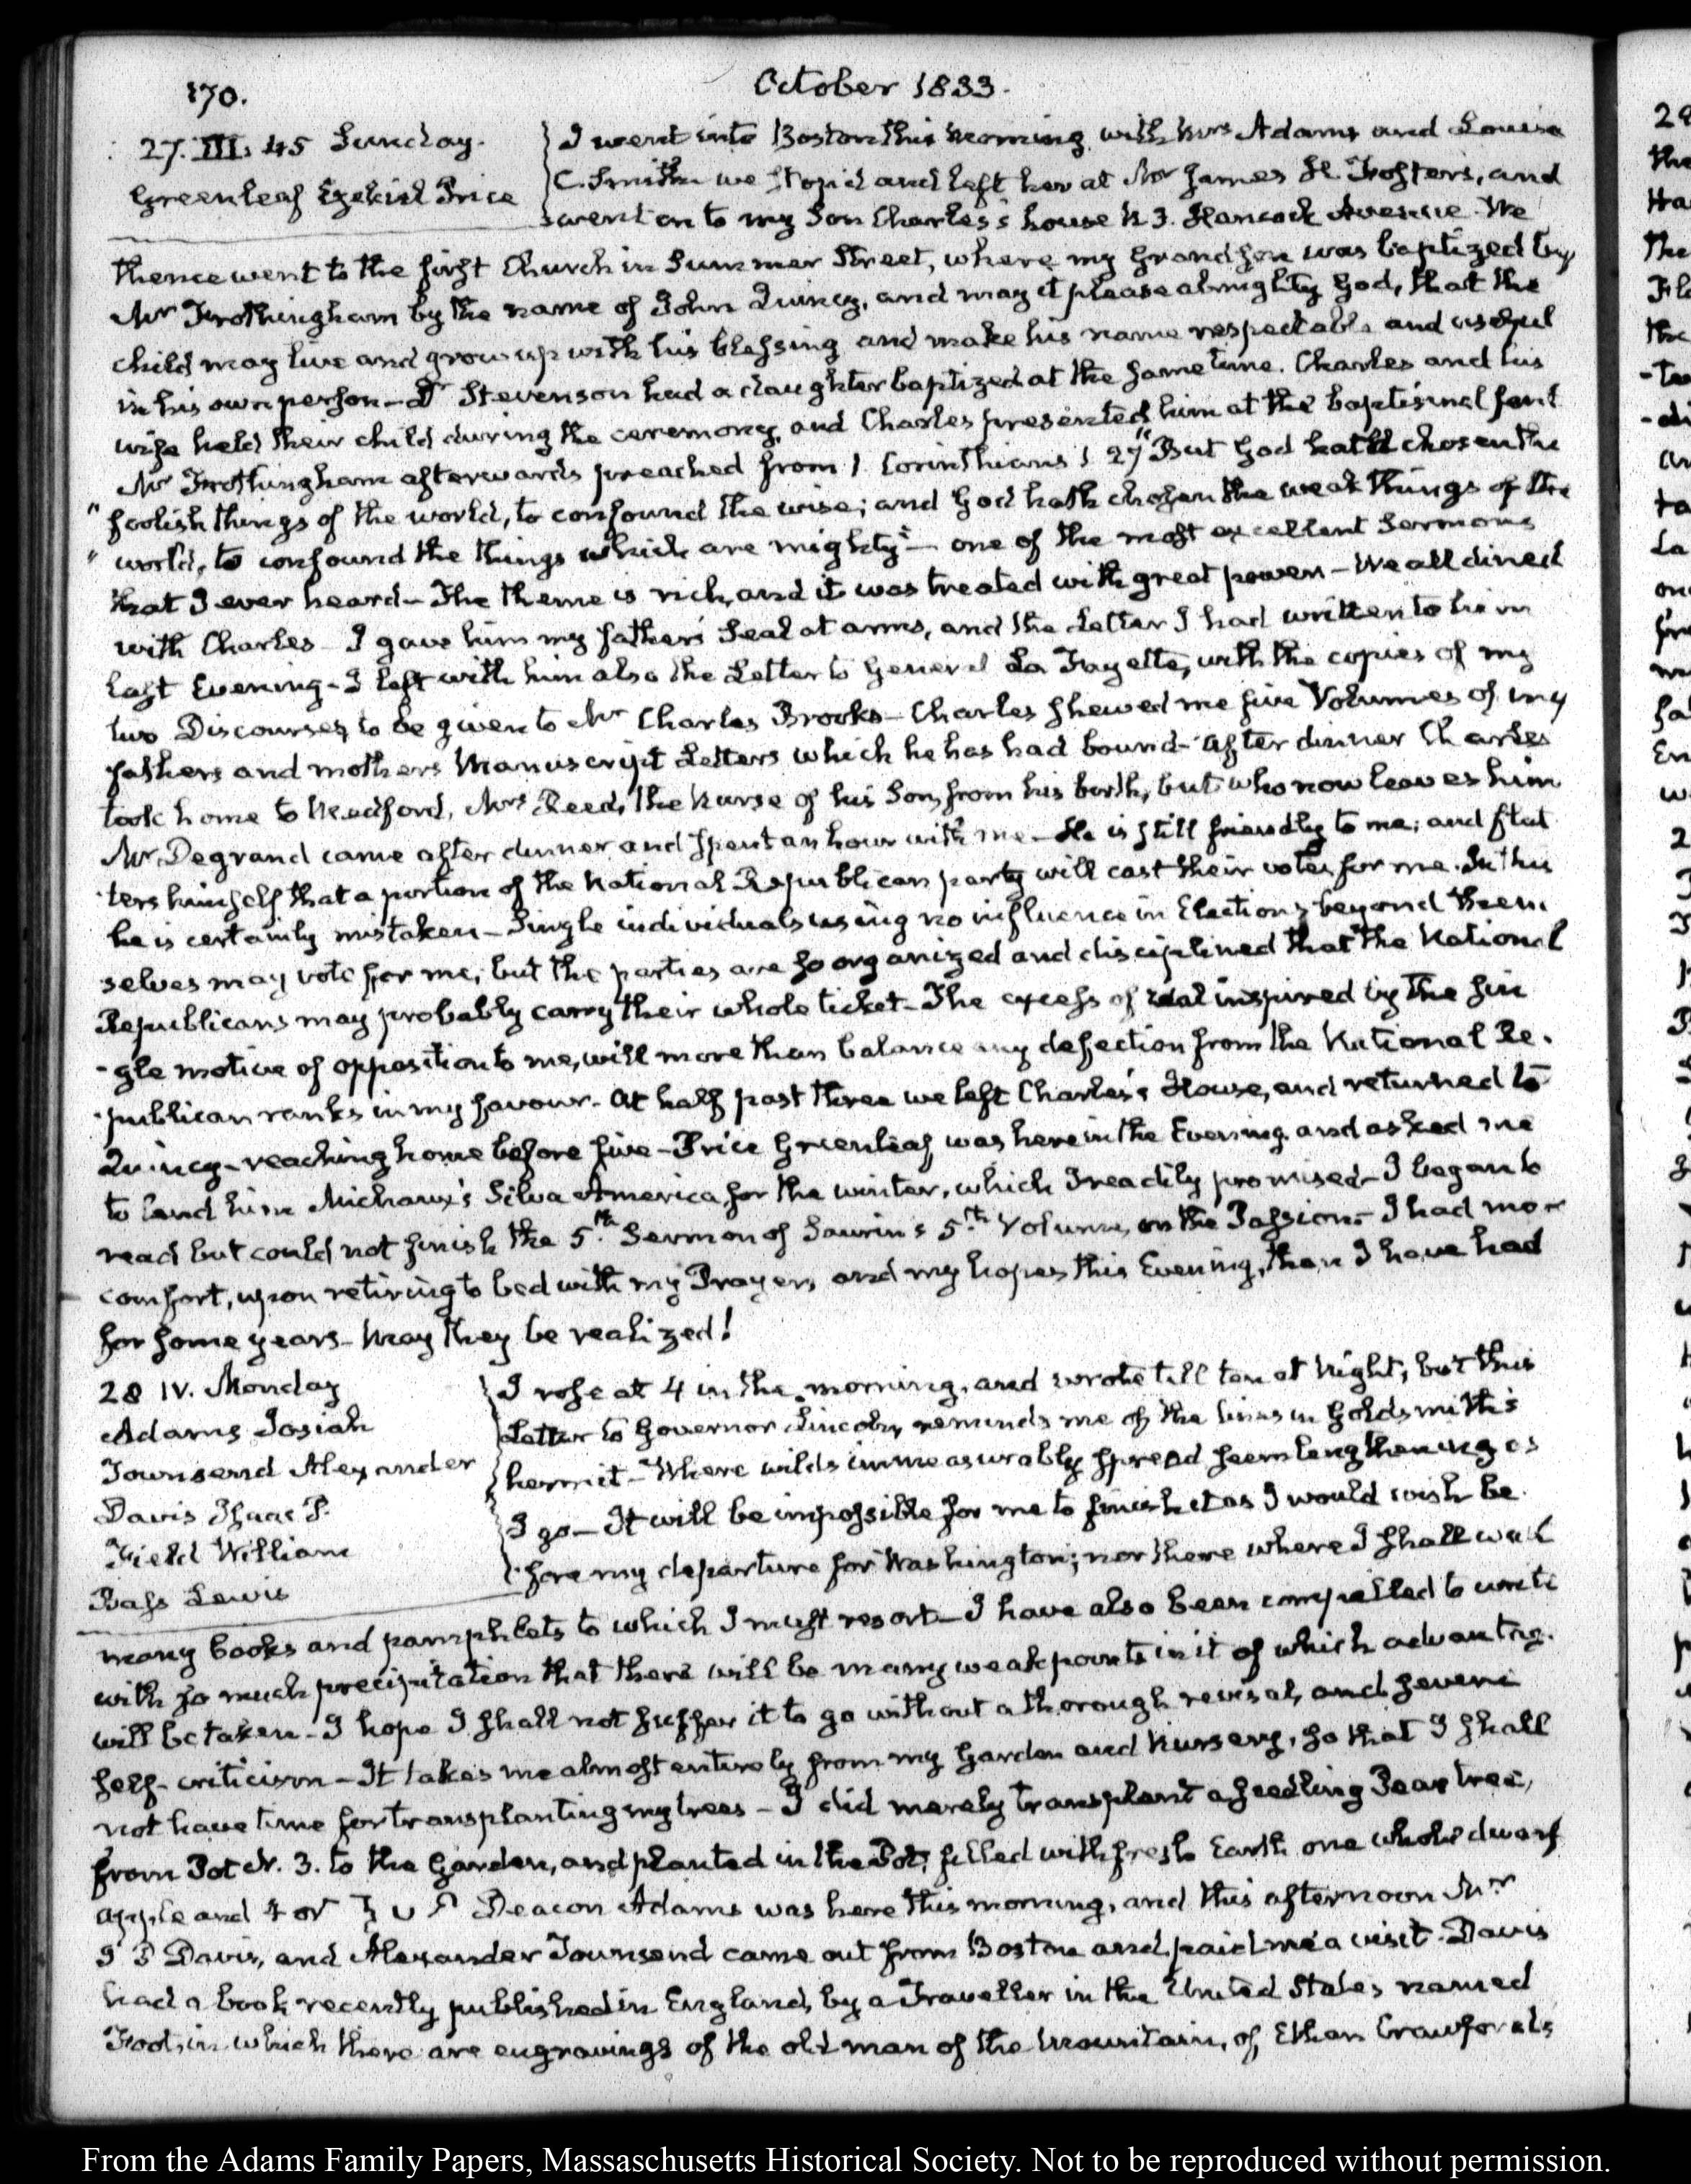 170.
October 1833.
27. III. 45 Sunday.
Greenleaf Ezekiel Price
I went into Boston this morning with Mrs Adams and Louisa
C. Smith we stop'd and left her at Mr James H. Foster's, and
went on to my Son Charles's house N 3. Hancock Avenue. We
thence went to the first Church in Summer Street, where my Grandson was baptized by
Mr Frothingham by the name of John Quincy, and may it please almighty God, that the
child may live and grow up with his blessing and make his name respectable and useful
in his own person — Dr Stevenson had a daughter baptized at the same time. Charles and his
wife held their child during the ceremony, and Charles presented him at the baptismal font
Mr Frothingham afterwards preached from 1 Corinthians 1 27 "But God hath chosen the
" foolish things of the world, to confound the wise; and God hath chosen the weak things of the
" world, to confound the things which are mighty" — one of the most excellent Sermons
that I ever heard — The theme is rich, and it was treated with great power — We all dined
with Charles — I gave him my father's Seal at arms, and the Letter I had written to him
last Evening — I left with him also the Letter to General La Fayette, with the copies of my
two Discourses, to be given to Mr Charles Brooks — Charles shewed me five Volumes of my
fathers and mothers Manuscript Letters which he has had bound — After dinner Charles
took home to Medford, Mrs Reed, the Nurse of his Son, from his birth, but who now leaves him
Mr Degrand came after dinner and spent an hour with me — He is still friendly to me; and flat
-ters himself that a portion of the National Republican party will cast their votes for me. In this
he is certainly mistaken — Single individuals using no influence in Elections beyond them
selves may vote for me; but the parties are so organized and disciplined that the National
Republicans may probably carry their whole ticket — The excess of zeal inspired by the sin
-gle motive of opposition to me, will more than balance any defection from the National Re-
-publican ranks in my favour. At half past three we left Charles's House, and returned to
Quincy — reaching home before five — Price Greenleaf was here in the Evening and asked me
to lend him Michaux's Silva America for the winter, which I readily promised — I began to
read but could not finish the 5th. Sermon of Saurin's 5th. Volume, on the Passion — I had more
comfort, upon retiring to bed with my Prayers, and my hopes this Evening, than I have had
for some years — May they be realized!
28 IV. Monday
Adams Josiah
Townsend Alexander
Davis Isaac P.
Field William
Bass Lewis
I rose at 4 in the morning, and wrote till ten at Night, but this
Letter to Governor Lincoln, reminds me of the lines in Goldsmith's
hermit — Where wilds immeasurably spread seem lengthening as
I go — It will be impossible for me to finish it as I would wish be-
-fore my departure for Washington; nor there where I shall want
many books and pamphlets to which I must resort — I have also been compelled to write
with so much precipitation that there will be many weak points in it of which advantage
will be taken — I hope I shall not suffer it to go without a thorough revisal, and severe
self-criticism — It takes me almost entirely from my Garden and Nursery, so that I shall
not have time for transplanting my trees — I did merely transplant a seedling Pear tree,
from Pot N. 3. to the Garden, and planted in the Pot, filled with fresh Earth one whole dwarf
apple and 4 or Deacon Adams was here this morning, and this afternoon Mr
I P Davis, and Alexander Townsend came out from Boston and paid me a visit. Davis
had a book recently published in England, by a Traveller in the United States named
in which there are engravings of the old man of the Mountain, of Ethan Crawford's
From the Adams Family Papers, Massachusetts Historical Society. Not to be reproduced without permission.